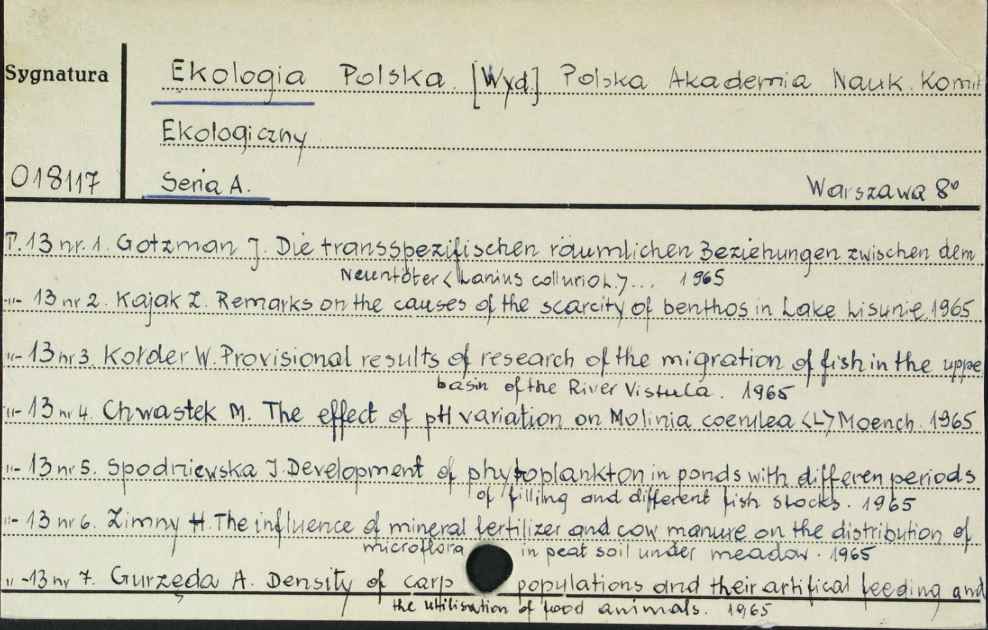 Sygnatura
Ekologia Polska. [Wyd.] Polska Akademia Nauk. Komit
Ekologiczny
018117
Seria A.
Warszawa 8°
T. 13 nr. 1. Gotzman J. Die transspezifischen räumlichen Beziehungen zwischen dem
Neuntöter <Lanius collurio L.>... 1965
-"- 13 nr 2. Kajak Z. Remarks on the causes of the scarcity of benthos in Lake Lisunie 1965
-"- 13 nr 3. Kołder W. Provisional results of research of the migration of fish in the uppe
basin of the River Vistula. 1965
-"- 13 nr 4. Chwastek M. The effect of pH variation on Molinia coerulea <L> Moench. 1965
-"- 13 nr 5. Spodniewska J. Development of phytoplankton in ponds with differen periods
of filling and different fish stocks. 1965
-"- 13 nr 6. Zimny H. The influence of mineral fertilizer and cow manure on the distribution of
microflora in peat soil under meadow. 1965
-"- 13 nr 7. Gurzęda A. Density of carp populations and their artifical feeding and
the utilisation of food animals. 1965